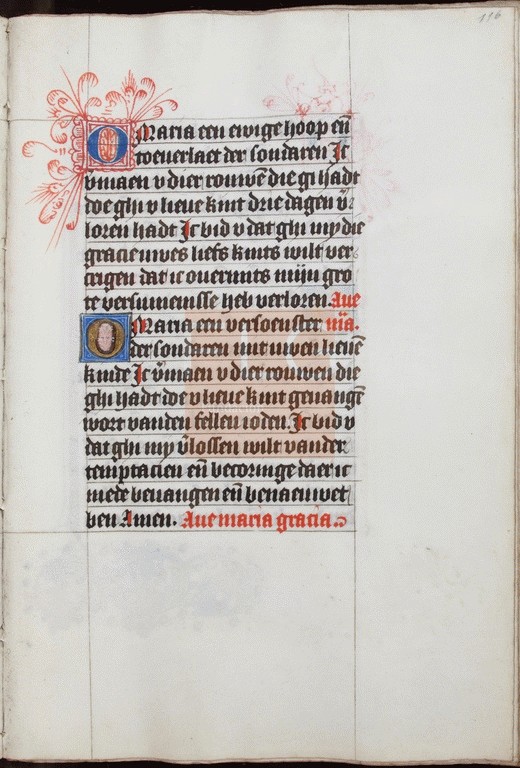 116
O Maria een ewige hoop en̄
toeuerlaet der sondaren Ic
v̄maen v dier rouwē die gi hadt
doe ghi v lieue kint drie dagen v̄
loren hadt Ic bid v dat ghi mÿ die
gracie uwes liefs kints wilt ver
crigen dat ic ouermits mÿn gro
te versumenisse heb verloren Aue
O Maria een versoenster m̄a.
der sondaren mit uwen lieuē
kinde Ic v̄maen v dier rouwen die
ghi hadt doe v lieue kint geuangē
wort vanden fellen ioden Ic bid v
dat ghi mÿ v̄lossen wilt vander
temptacien en̄ becoringe daer ic
mede beuangen en̄ benaeuwet
ben Amen. Aue maria gracia.